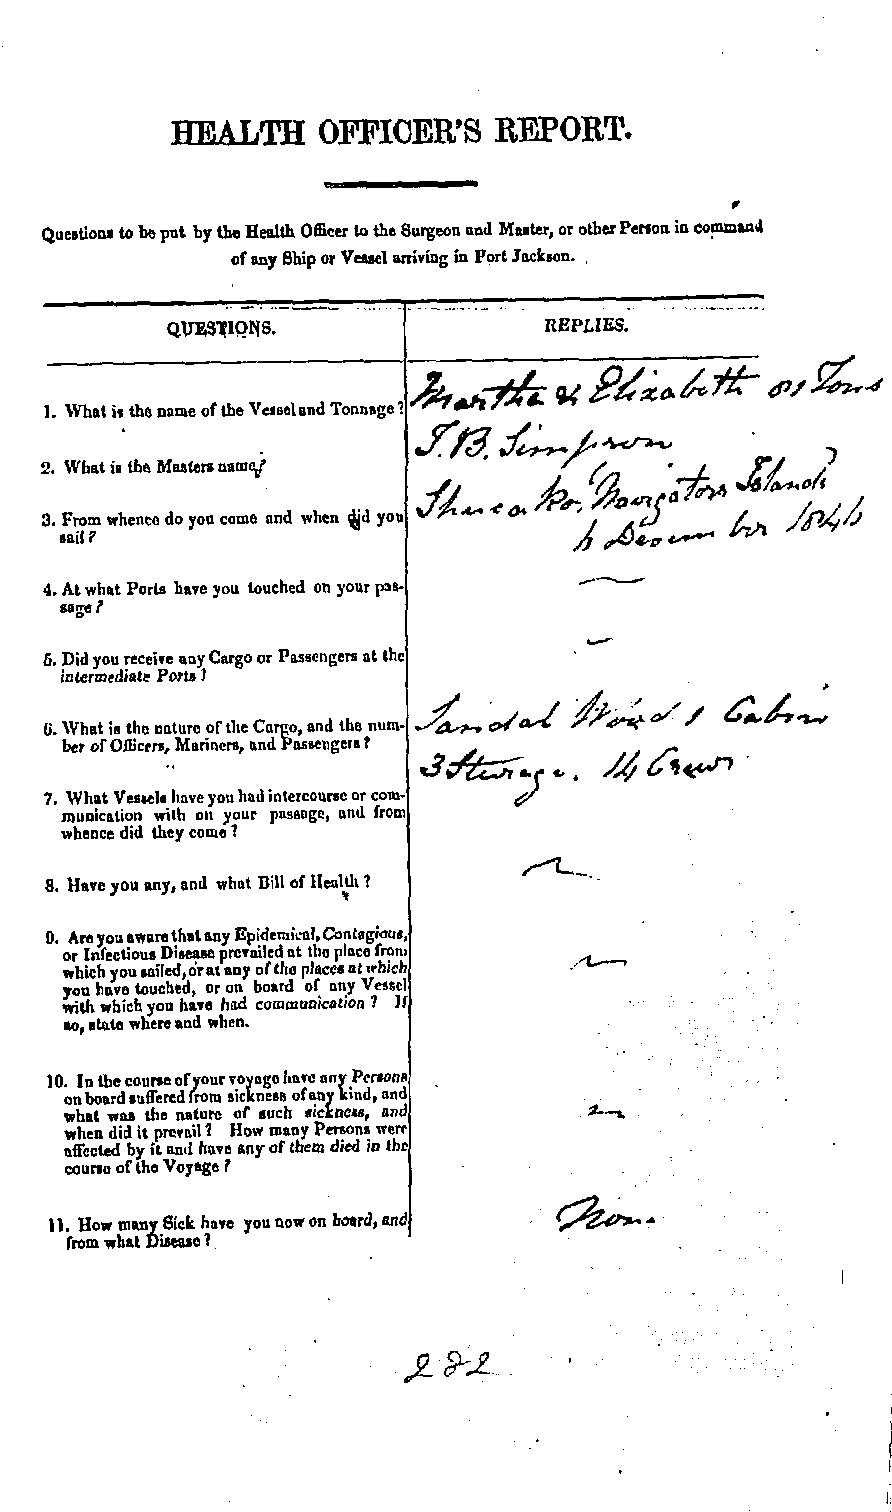 HEALTH OFFICER'S REPORT.
Questions to be put by the Health Officer to the Surgeon and Master, or other Person in command
of any Ship or Vessel arriving in Port Jackson.
QUESTIONS.
REPLIES.
1. What is the name of the Vessel and Tonnage?
Martha & Elizabeth Tons
2. What is the Masters name?
J. B. Simpson
3. From whence do you come and when did you
sail?
Navigators Islands
6 December 1846
4. At what Ports have you touched on your pas-
sage?
—
5. Did you receive any Cargo or Passengers at the
intermediate Ports?
—
6. What is the nature of the Cargo, and the num-
ber of Officers, Mariners, and Passengers?
Sandal Wood 1 Cabin
3 Sterage. 14 Crew
7. What Vessels have you had intercourse or com-
munication with on your passage, and from
whence did they come?
8. Have you any, and what Bill of Health?
—
9. Are you aware that any Epidemical, Contagious,
or Infectious Disease prevailed at the place from
which you sailed, or at any of the places at which
you have touched, or on board of any Vessel
with which you have had communication? If
so, state where and when.
—
10. In the course of your voyage have any Persons
on board suffered from sickness of any kind, and
what was the nature of such sickness, and
when did it prevail? How many Persons were
affected by it and have any of them died in the
course of the Voyage?
—
11. How many Sick have you now on board, and
from what Disease?
Non.
282